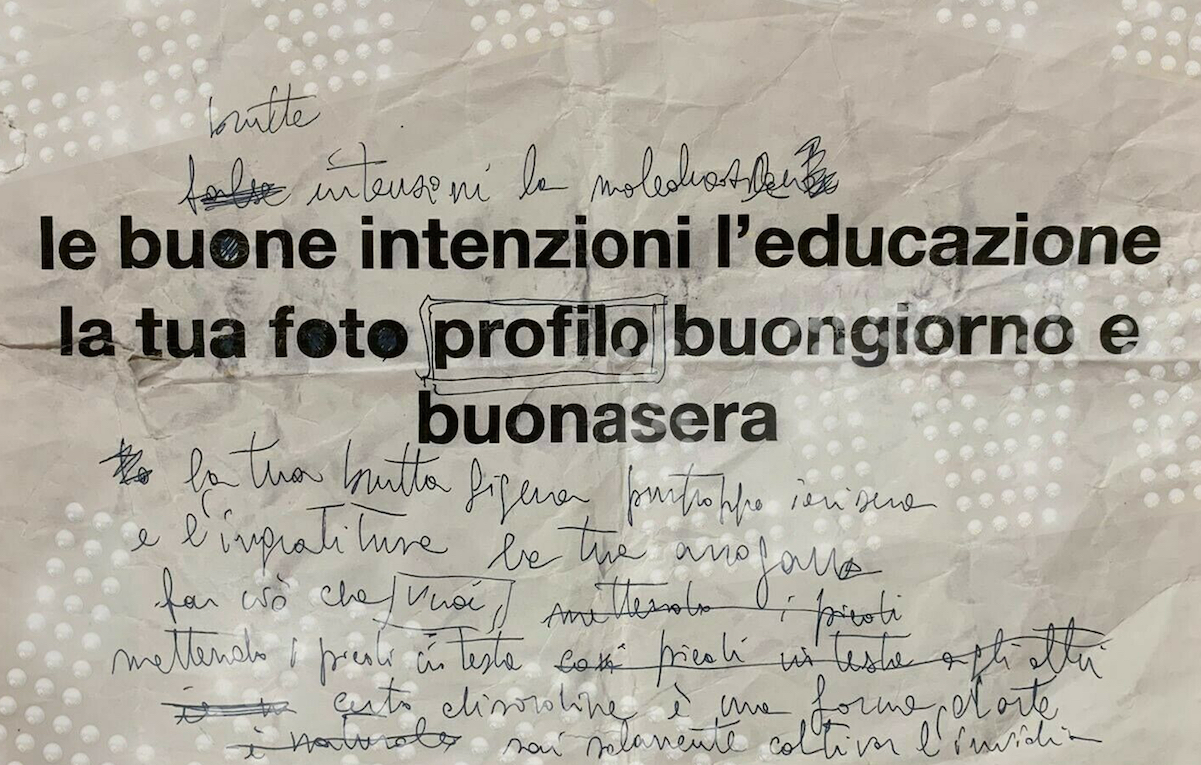 brutte
false intenzioni la maleducazione
le buone intenzioni l'educazione
la tua foto profilo buongiorno e
buonasera
la tua brutta figura purtroppo ieri sera
e l'ingratitudine la tua arroganza
fai ciò che vuoi, mettendo i piedi
mettendo i piedi in testa così piedi in testa agli altri
certo disordine è una forma d'arte
è naturale sai solamente coltivar l'invidia